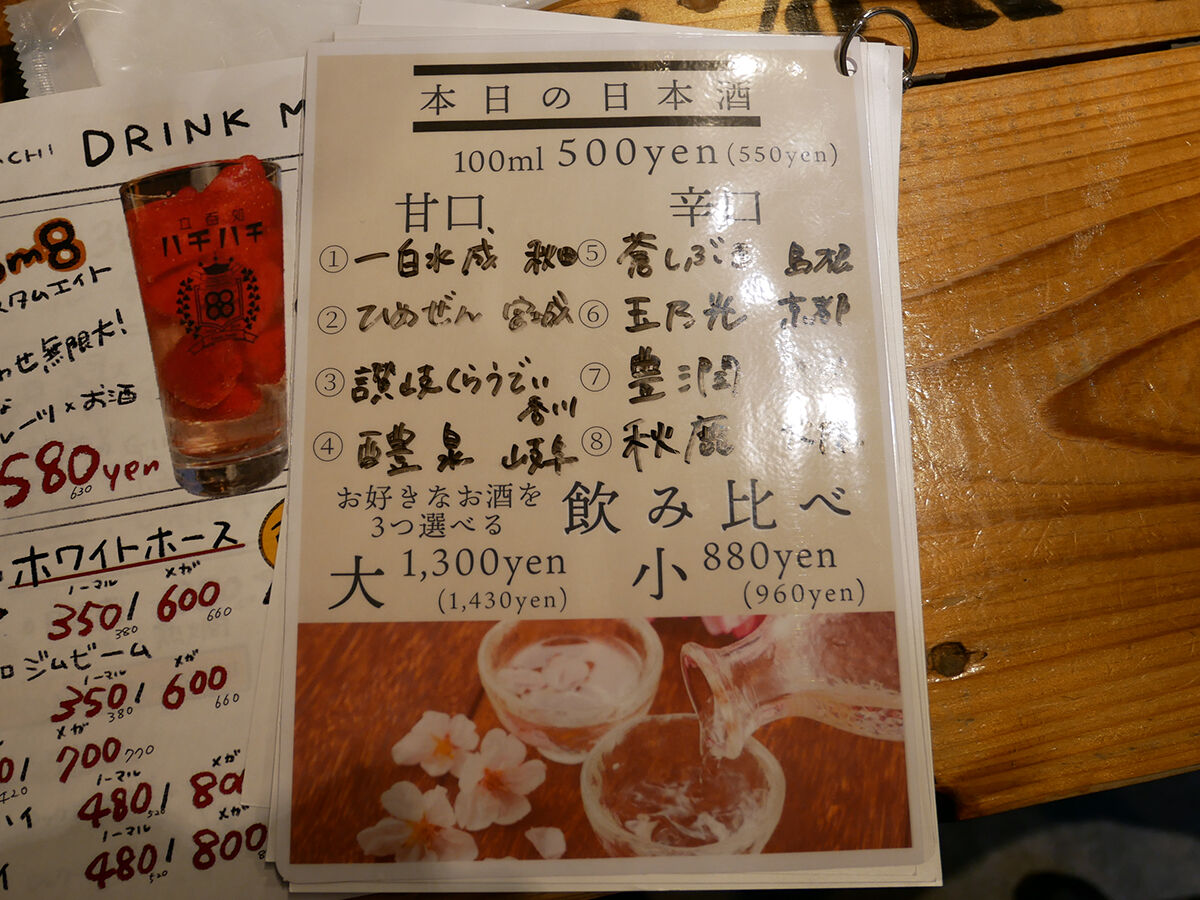 本日の日本酒
100ml 500yen (550yen)
甘口 辛口
① 一白水成 秋田
② ひめぜん 宮城
③ 讃岐くらうでぃ
香川
④ 醴泉 岐阜
⑤ 蒼しぶき 鳥取
⑥ 玉乃光 京都
⑦ 豊潤
⑧ 秋鹿
お好きなお酒を
3つ選べる
飲み比べ
大 1,300yen
(1,430yen)
小 880yen
(960yen)
CHI DRINK M
om8
スタムエイト
わせ無限大!
ルーツ×お酒
580yen
630
立呑処
ハチハチ
88
ホワイトホース
ノーマル メガ
350/ 600
380 660
ジムビーム
ノーマル メガ
350/ 600
380 660
メガ
700 770
420
ノーマル メガ
480/ 80
520
ハイ
ノーマル メガ
480/ 800
520
イ